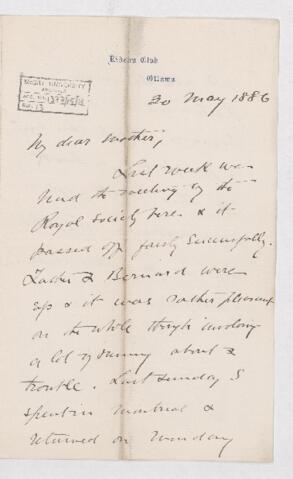 Rideau Club
Ottawa
McGILL UNIVERSITY
ARCHIVES
ACC. NO.
REF.
30 May 1886
My dear Mother,
Last week we
had the meeting of the
Royal Society here & it
passed off fairly successfully.
Father & Bernard were
up & it was rather pleasant
on the whole though involving
a lot of running about &
trouble. Last Sunday I
spent in Montreal &
returned on Monday